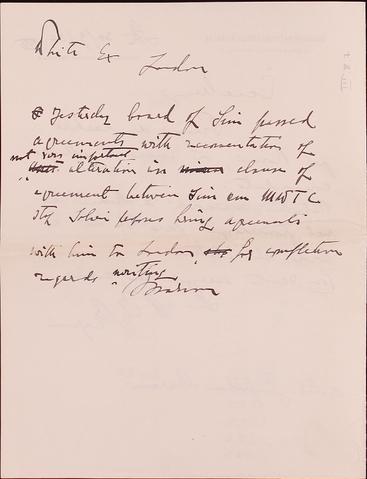 White Ex
London
Yesterday board of Sim passed
agreements with recomentation of
not very important
alteration in clause of
agreement between Sim em MWTC
stop Solvi before bring agreements
with him to London for completion
regards writing
Marconi